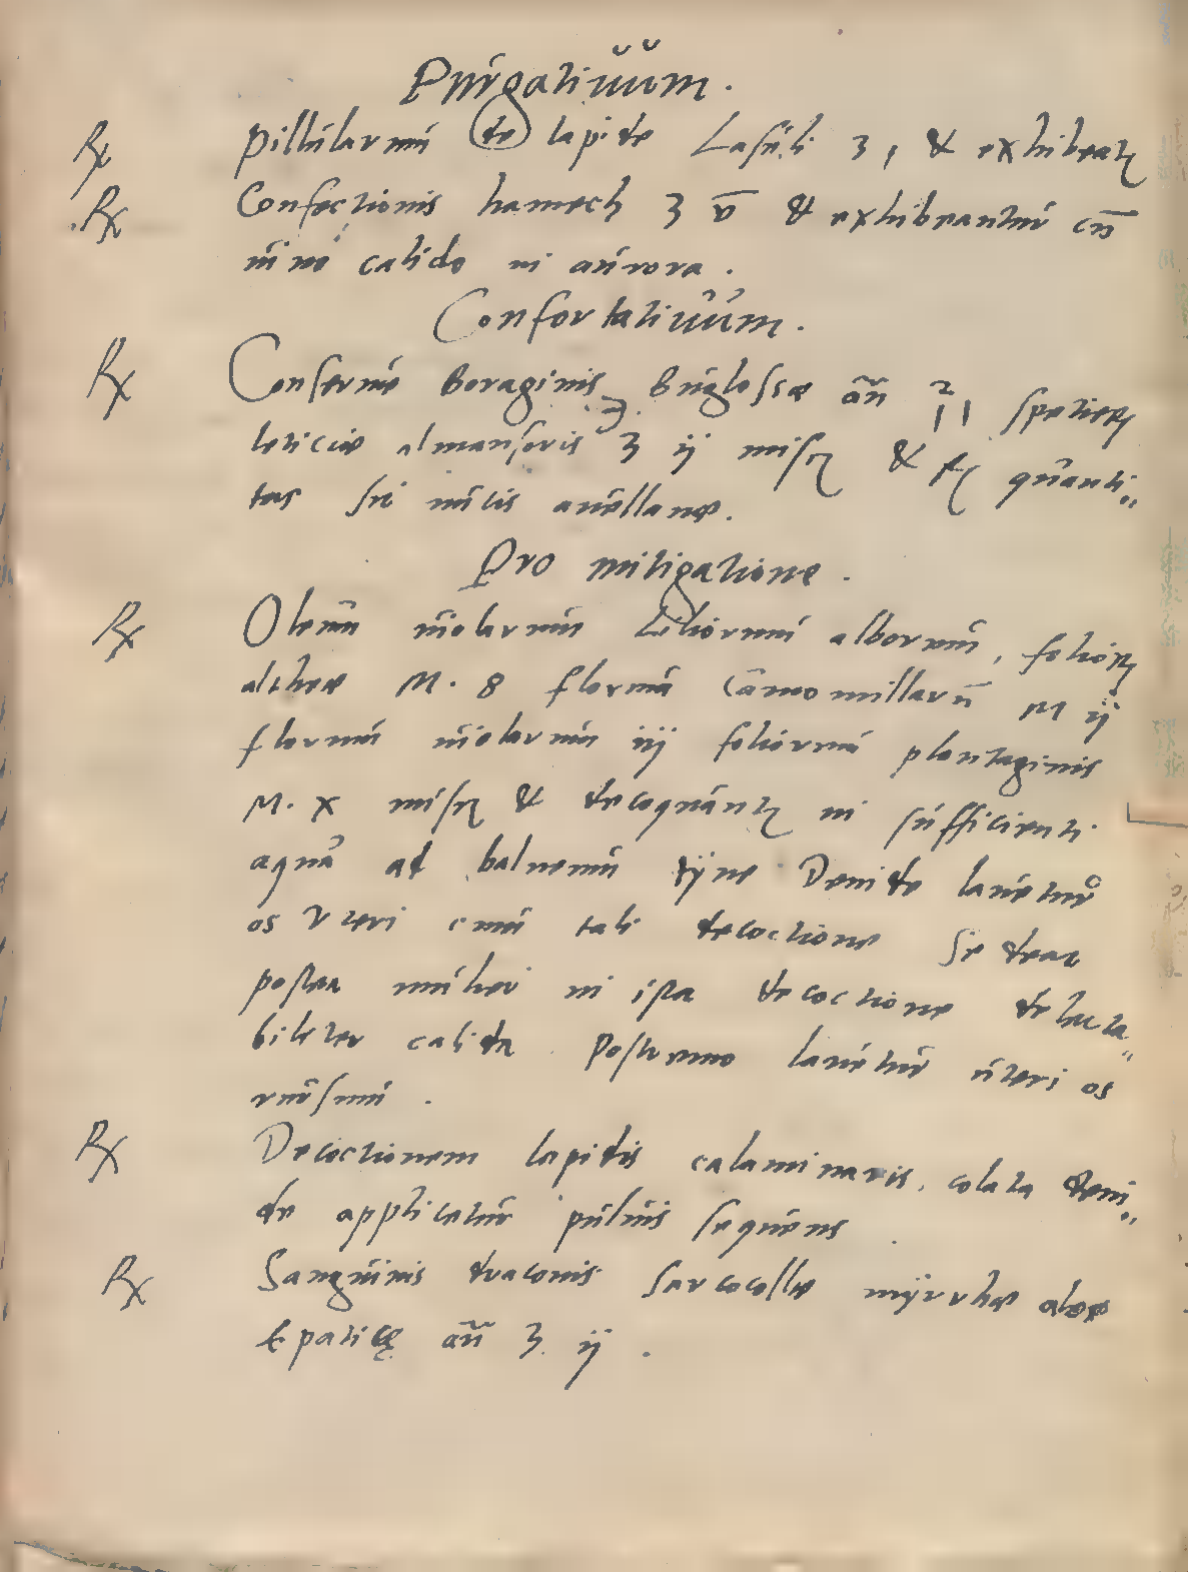 Purgativuum.
℞ Pillularum de lapide Lasuli ʒ 1 & exhibeatꝫ
℞ Confectionis hamech ʒ v & exhibeantur cū
vino calido in aurora.
Confortativuum.
℞ Conserve boraginis, buglossæ añ specierꝫ
leticiæ almansoris ʒ ij misꝫ & fꝫ quanti„
tas sit nucis avellanæ.
Pro mitigatione.
℞ Oleum violarum Liliorum alborum, foliorꝫ
altheæ M. 8 florum camomillarū M ij
florum violarum iij foliorum plantaginis
M. x misꝫ & decoquantꝫ in sufficienti
aqua ad balneum Deinde lavetur
os Vteri cum tali decoctione Sedeat
postea mulier in ista decoctione delecta„
biliter calida Postremo lavetur uteri os
rursum.
℞ Decoctionem lapidis calaminaris, colata dein„
de applicetur pulvis sequens.
℞ Sanguinis draconis sarcocollæ mÿrrhæ aloæ
Epaticę añ ʒ ij.